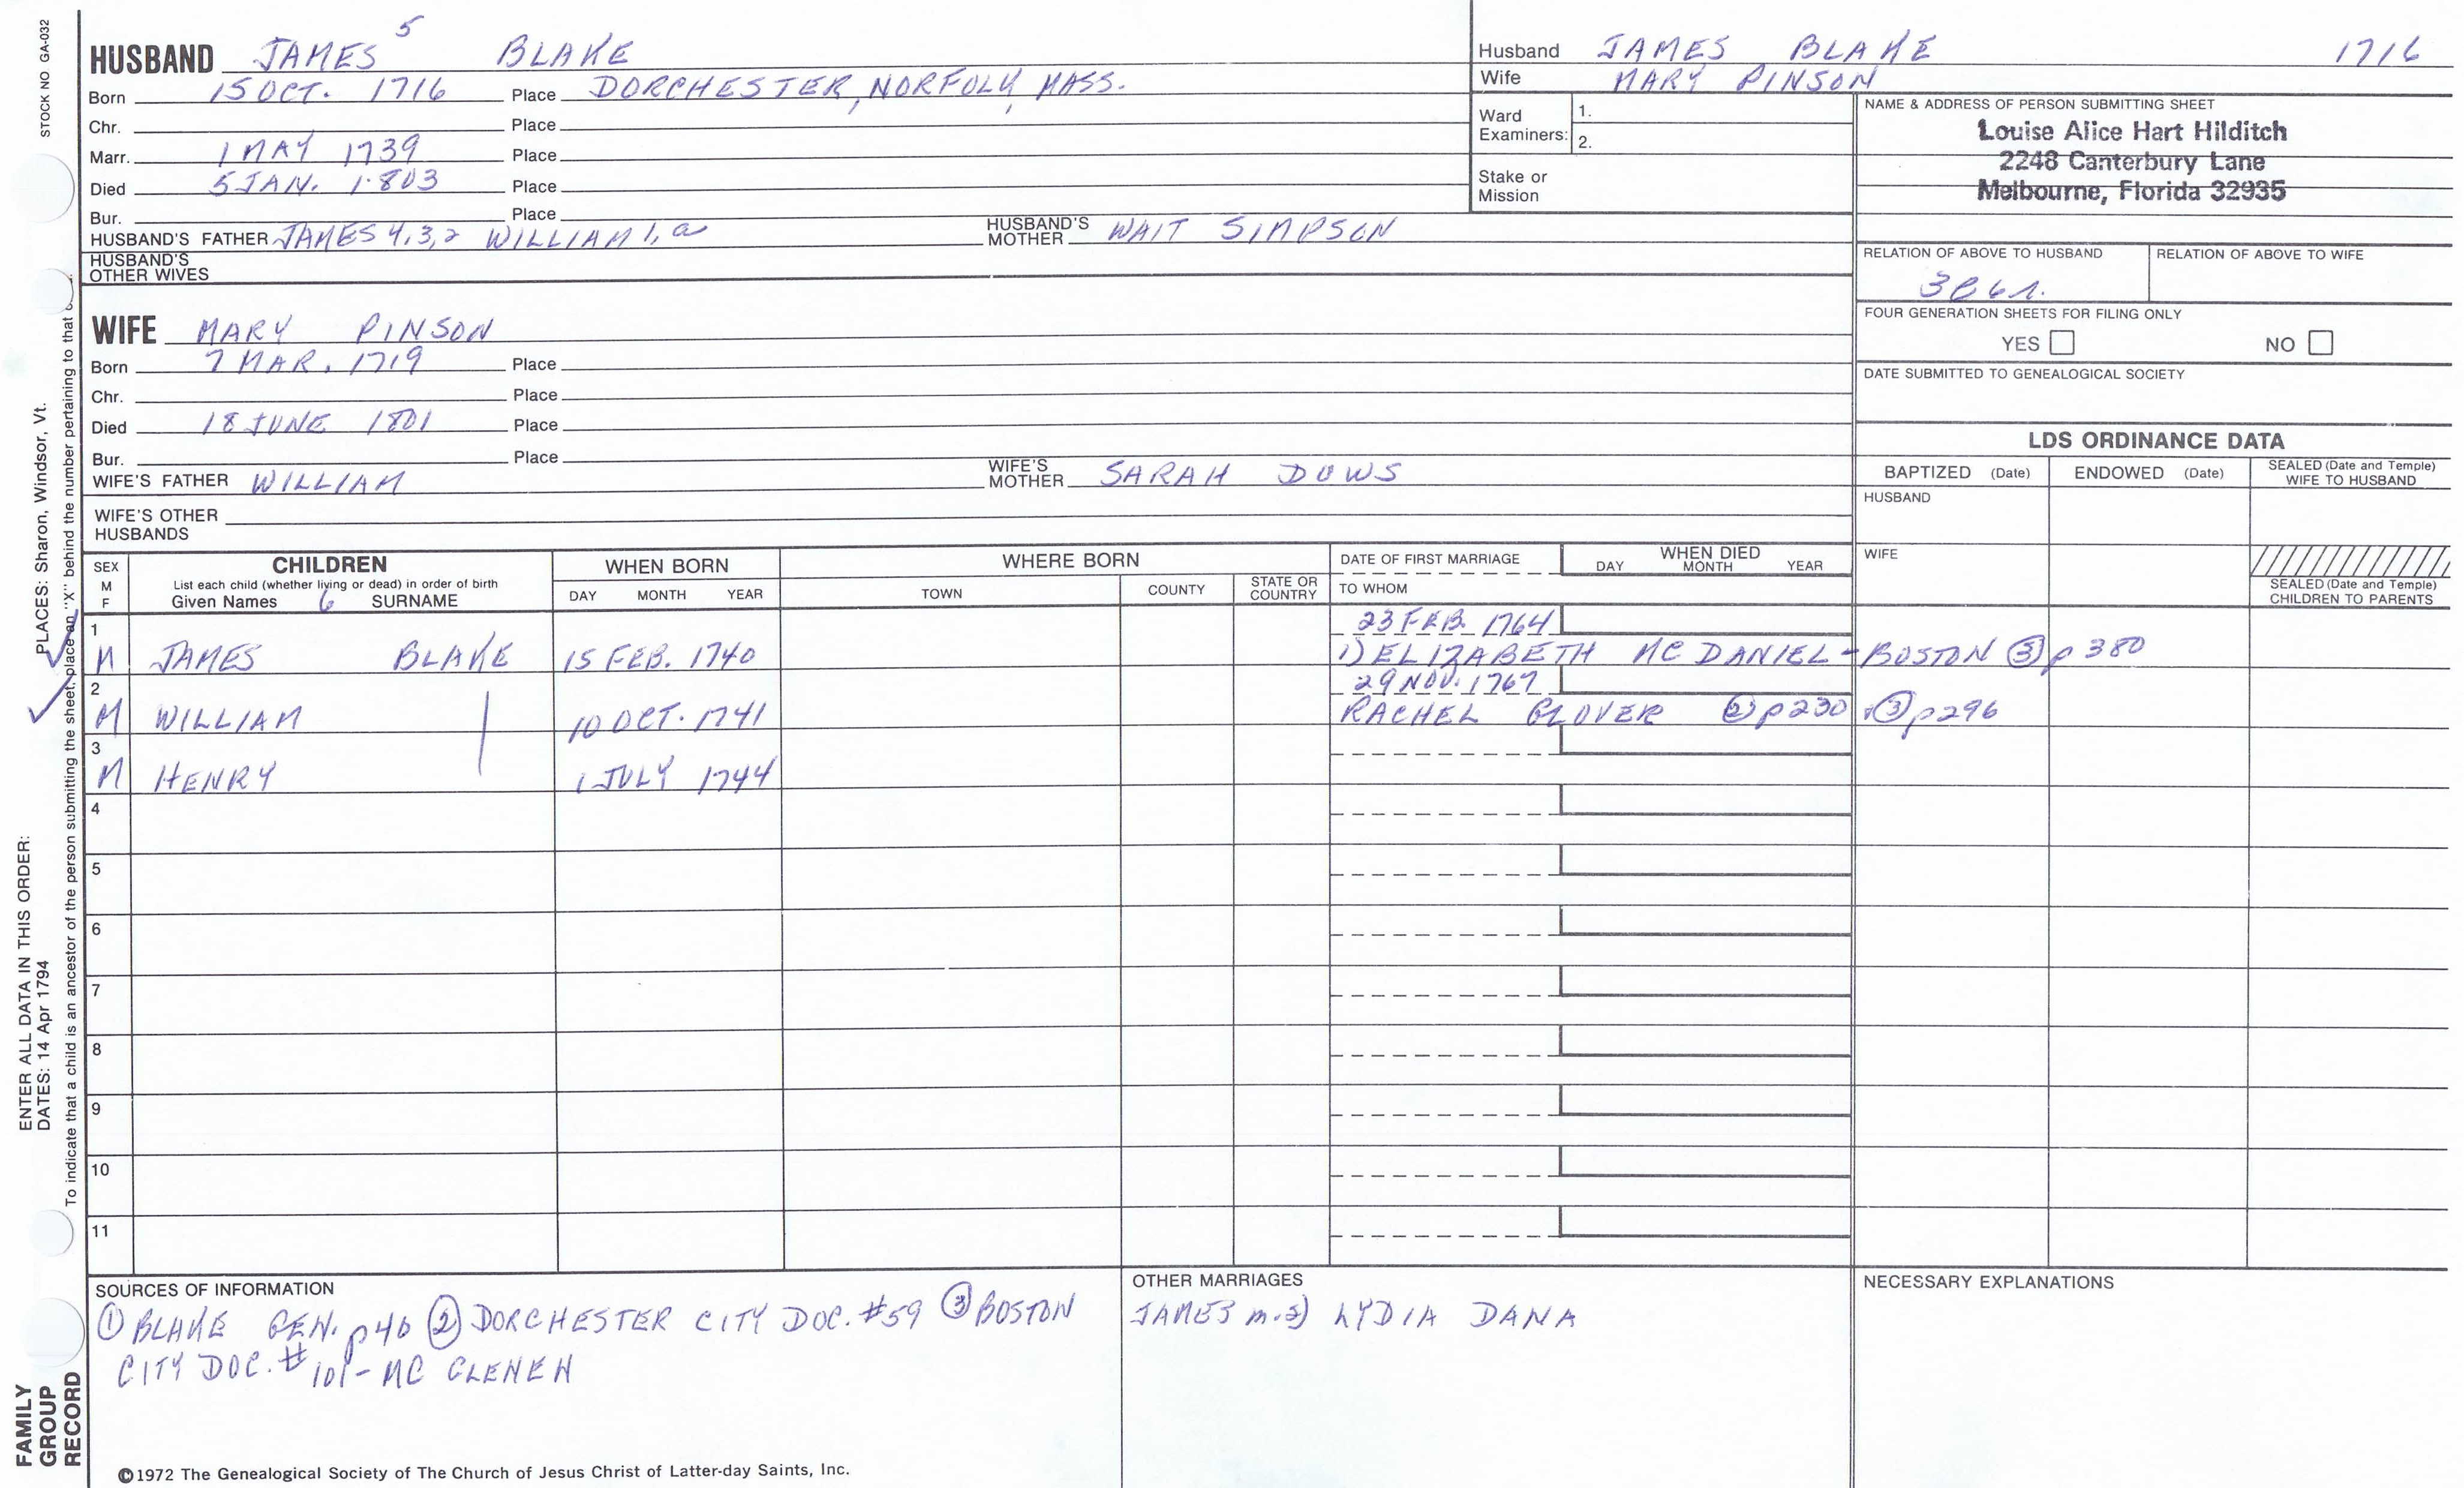 STOCK NO GA-032
HUSBAND JAMES 5 BLAKE
Born 15 OCT. 1716 Place DORCHESTER, NORFOLK, MASS.
Chr. Place
Marr. 1 MAY 1739 Place
Died 5 JAN. 1803 Place
Bur. Place
HUSBAND'S FATHER JAMES 4,3,2 WILLIAM 1, a HUSBAND'S MOTHER WAIT SIMPSON
HUSBAND'S OTHER WIVES
Husband JAMES BLAKE 1716
Wife MARY PINSON
Ward Examiners: 1.
2.
Stake or Mission
NAME & ADDRESS OF PERSON SUBMITTING SHEET
Louise Alice Hart Hilditch
2248 Canterbury Lane
Melbourne, Florida 32935
RELATION OF ABOVE TO HUSBAND RELATION OF ABOVE TO WIFE
FOUR GENERATION SHEETS FOR FILING ONLY
YES NO
DATE SUBMITTED TO GENEALOGICAL SOCIETY
WIFE MARY PINSON
Born 7 MAR. 1719 Place
Chr. Place
Died 18 JUNE 1801 Place
Bur. Place
WIFE'S FATHER WILLIAM WIFE'S MOTHER SARAH DOWS
WIFE'S OTHER HUSBANDS
LDS ORDINANCE DATA
BAPTIZED (Date) ENDOWED (Date) SEALED (Date and Temple) WIFE TO HUSBAND
HUSBAND
WIFE
SEALED (Date and Temple) CHILDREN TO PARENTS
SEX M F
CHILDREN
List each child (whether living or dead) in order of birth
Given Names 6 SURNAME
WHEN BORN
DAY MONTH YEAR
WHERE BORN
TOWN COUNTY STATE OR COUNTRY
DATE OF FIRST MARRIAGE
TO WHOM
WHEN DIED
DAY MONTH YEAR
1 23 FEB. 1764
M JAMES BLAKE 15 FEB. 1740 1) ELIZABETH MC DANIEL - BOSTON ③ p 380
2 29 NOV. 1767
M WILLIAM 10 OCT. 1741 RACHEL GLOVER ② p 230 ③ p 296
3
M HENRY 1 JULY 1744
4
5
6
7
8
9
10
11
SOURCES OF INFORMATION
① BLAKE GEN. p 40 ② DORCHESTER CITY DOC. #59 ③ BOSTON
CITY DOC. # 101 - MC GLENEN
OTHER MARRIAGES
JAMES m. 2) LYDIA DANA
NECESSARY EXPLANATIONS
©1972 The Genealogical Society of The Church of Jesus Christ of Latter-day Saints, Inc.
FAMILY GROUP RECORD
ENTER ALL DATA IN THIS ORDER:
DATES: 14 Apr 1794 PLACES: Sharon, Windsor, Vt.
To indicate that a child is an ancestor of the person submitting the sheet, place an "X" behind the number pertaining to that